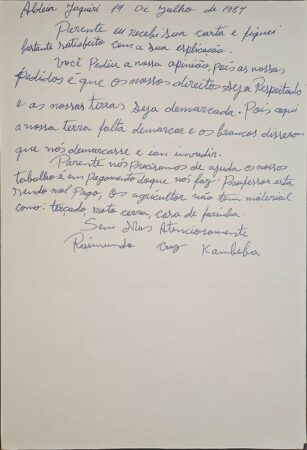 Aldeia Jaquiri 19 De Julho de 1987
Parente eu recebi sua carta e fiquei
bastante satisfeito com a sua esplicação.
Você Pediu a nossa opinião, pois as nossas
Pedidos é que os nossos direitos seja Respeitado
e as nossas terras seja demarcada. Pois aqui
a nossa terra falta demarcar e os brancos dissero
que nós demarcasse e ian invadir.
Parente nós Precisamos de ajuda os nosso
trabalho é um pagamento do que nós faz. Professor esta
sendo mal Pago, os agricultor não tem material
como: terçado, moto cerra, casa de farinha.
Sem Mas Atenciosamente
Raimundo Cruz Kambeba